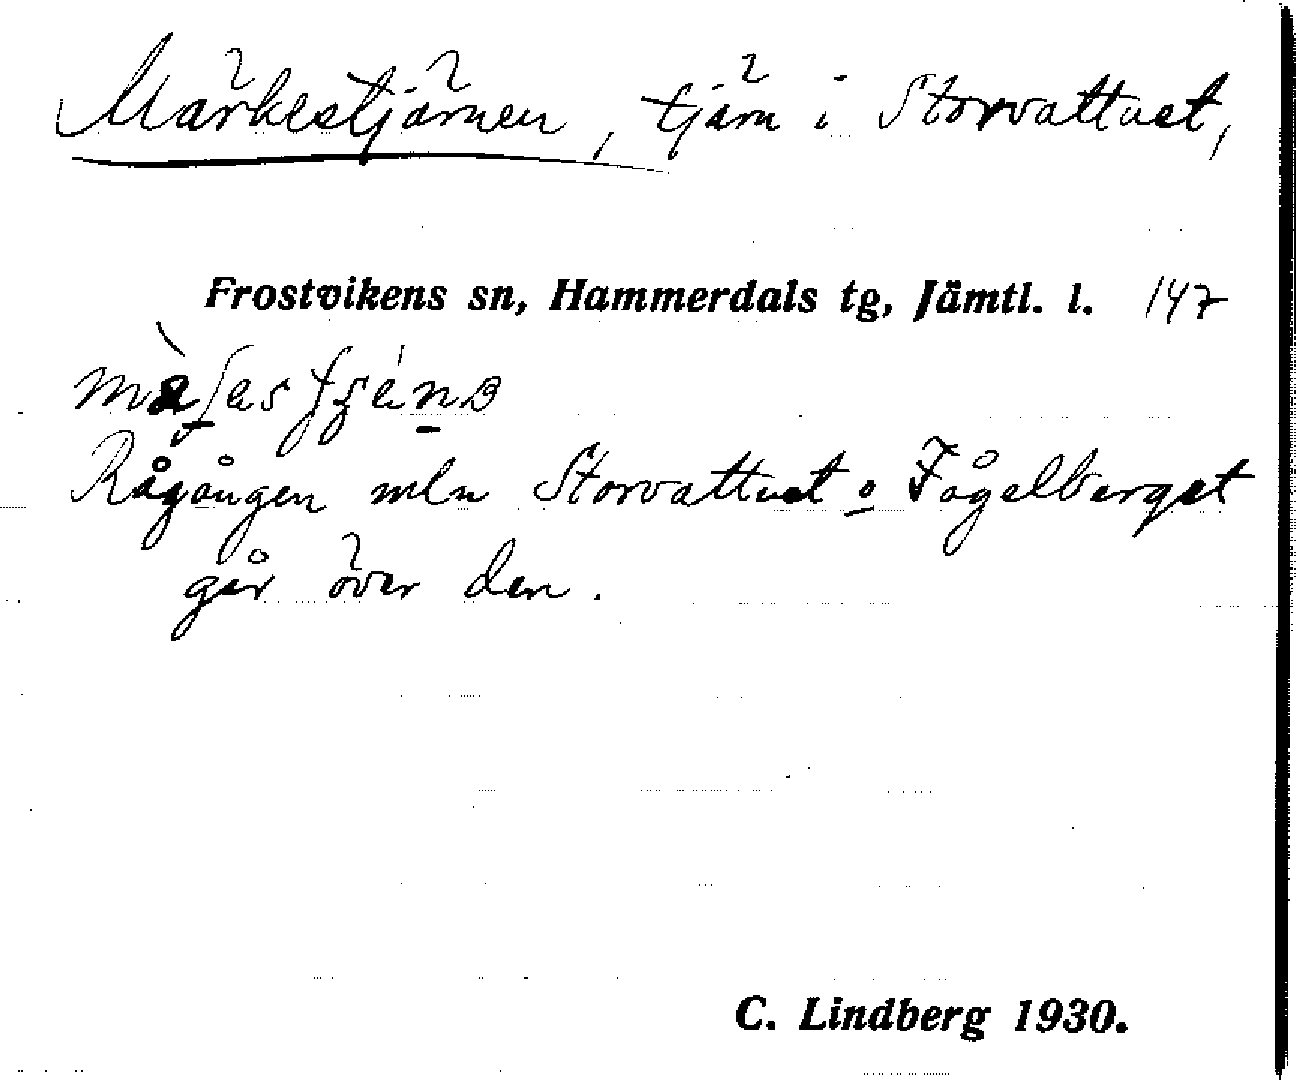 Märkestjärnen, tjärn i Storvattnet,
Frostvikens sn, Hammerdals tg, Jämtl. l. 147
Rågången mln Storvattnet o Fågelberget
går över den.
C. Lindberg 1930.